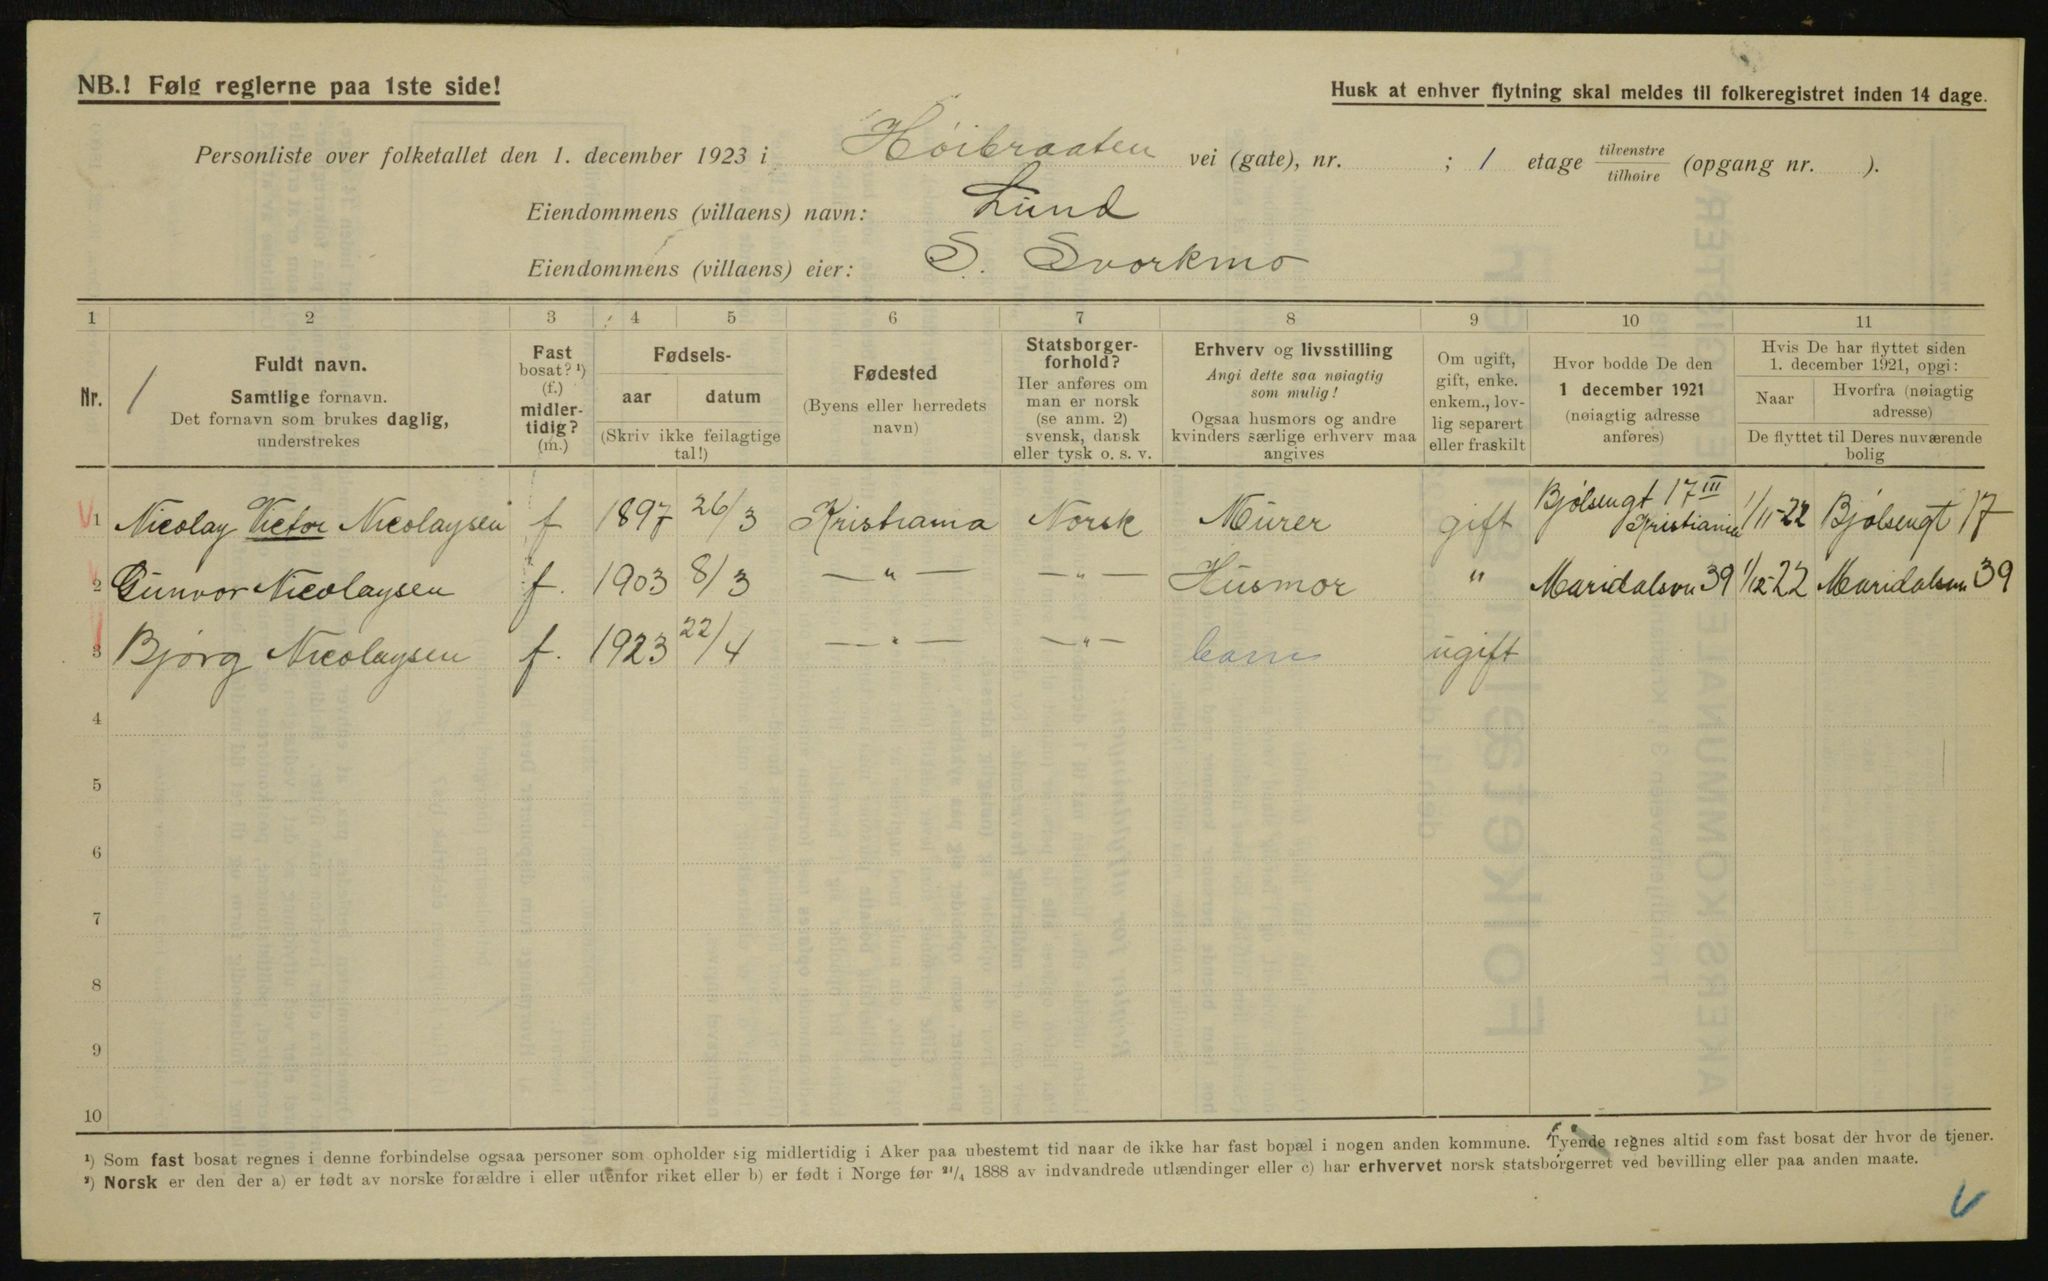 NB.! Følg reglerne paa 1ste side!
Husk at enhver flytning skal meldes til folkeregistret inden 14 dage.
Personliste over folketallet den 1. december 1923 i Høibraaten vei (gate), nr. ; 1 etage tilvenstre tilhøire (opgang nr. ).
Eiendommens (villaens) navn: Lund
Eiendommens (villaens) eier: S. Svorkmo
1 2 3 4 5 6 7 8 9 10 11
Nr.
1
Fuldt navn.
Samtlige fornavn.
Det fornavn som brukes daglig,
understrekes
Fast
bosat? ¹)
(f.)
midler-
tidig?
(m.)
Fødsels-
aar datum
(Skriv ikke feilagtige
tal!)
Fødested
(Byens eller herredets
navn)
Statsborger-
forhold?
Her anføres om
man er norsk
(se anm. 2)
svensk, dansk
eller tysk o. s. v.
Erhverv og livsstilling
Angi dette saa nøiagtig
som mulig!
Ogsaa husmors og andre
kvinders særlige erhverv maa
angives
Om ugift,
gift, enke.
enkem., lov-
lig separert
eller fraskilt
Hvor bodde De den
1 december 1921
(nøiagtig adresse
anføres)
Hvis De har flyttet siden
1. december 1921, opgi:
Naar
Hvorfra (nøiagtig
adresse)
De flyttet til Deres nuværende
bolig
1 Nicolay Victor Nicolaysen f 1897 26/3 Kristiania Norsk Murer gift Bjølsengt 17 III Kristiania 1/11-22 Bjølsengt 17
2 Gunvor Nicolaysen f. 1903 8/3 —"— —"— Husmor " Maridalsvn 39 1/12-22 Maridalsvn 39
3 Bjørg Nicolaysen f. 1923 22/4 —"— —"— barn ugift
4
5
6
7
8
9
10
¹) Som fast bosat regnes i denne forbindelse ogsaa personer som opholder sig midlertidig i Aker paa ubestemt tid naar de ikke har fast bopæl i nogen anden kommune. Tyende regnes altid som fast bosat der hvor de tjener.
²) Norsk er den der a) er født av norske forældre i eller utenfor riket eller b) er født i Norge før ²¹/₄ 1888 av indvandrede utlændinger eller c) har erhvervet norsk statsborgerret ved bevilling eller paa anden maate.